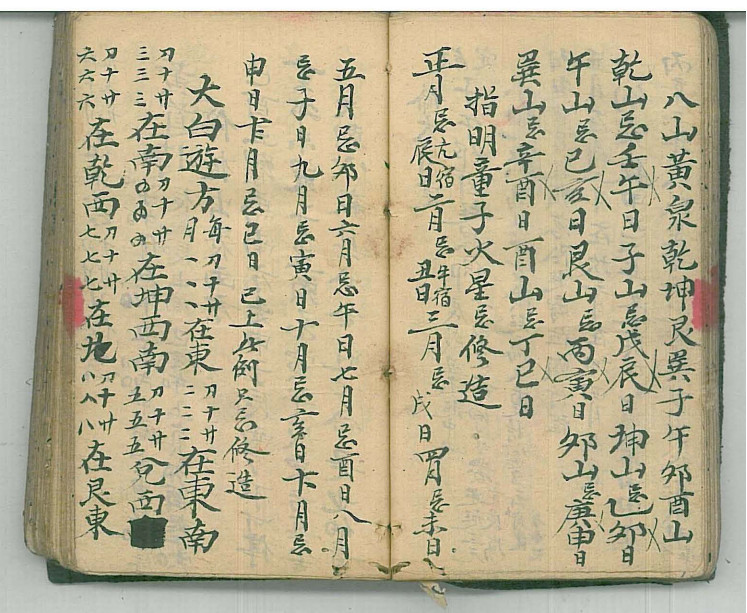 八山黃泉乾坤艮巽子午卯酉山
乾山忌壬午日子山忌戊辰日坤山忌乙卯日
午山忌己亥日艮山忌丙寅日卯山忌庚申日
巽山忌辛酉日酉山忌丁巳日
指明童子火星忌修造
正月忌亢宿辰日二月忌牛宿丑日三月忌戌日四月忌未日
五月忌卯日六月忌午日七月忌酉日八月
忌子日九月忌寅日十月忌亥日十一月忌
申日十二月忌巳日 已上此例只忌修造
大白遊方每月初一十一廿一在東 初二十二廿二在東南
初三十三廿三在南 初四十四廿四在坤西南 初五十五廿五兌西
初六十六廿六在乾西 初七十七廿七在北 初八十八廿八在艮東